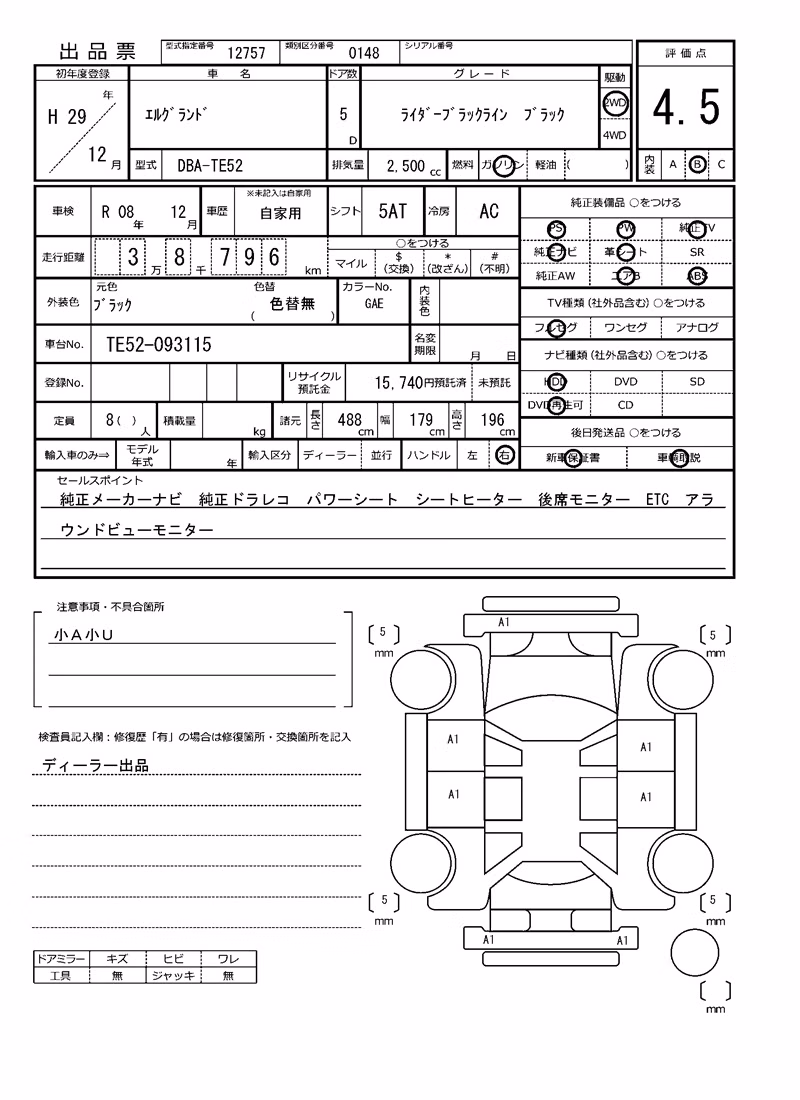 出品票 型式指定番号 12757 類別区分番号 0148 シリアル番号
評価点
4.5
内装 A B C
初年度登録 車名 ドア数 グレード 駆動
H 29 年 12 月
ｴﾙｸﾞﾗﾝﾄﾞ 5 D ﾗｲﾀﾞｰﾌﾞﾗｯｸﾗｲﾝ ﾌﾞﾗｯｸ 2WD
4WD
型式 DBA-TE52 排気量 2,500 cc 燃料 ガソリン 軽油 ( )
車検 R 08 年 12 月 車歴 ※未記入は自家用 自家用 シフト 5AT 冷房 AC
走行距離 3 万 8 千 7 9 6 km
○をつける
マイル $(交換) *(改ざん) #(不明)
外装色 元色 ﾌﾞﾗｯｸ 色替 ( 色替無 ) カラーNo. GAE 内装色
車台No. TE52-093115 名変期限 月 日
登録No. リサイクル預託金 15,740円預託済 未預託
定員 8( ) 人 積載量 kg 諸元 長さ 488 cm 幅 179 cm 高さ 196 cm
輸入車のみ⇒ モデル年式 年 輸入区分 ディーラー 並行 ハンドル 左 右
純正装備品 ○をつける
PS PW 純正TV
純正ナビ 革シート SR
純正AW エアB ABS
TV種類(社外品含む)○をつける
フルセグ ワンセグ アナログ
ナビ種類(社外品含む)○をつける
HDD DVD SD
DVD再生可 CD
後日発送品 ○をつける
新車保証書 車輌取説
セールスポイント
純正メーカーナビ 純正ドラレコ パワーシート シートヒーター 後席モニター ETC アラ
ウンドビューモニター
注意事項・不具合箇所
小A小U
検査員記入欄：修復歴「有」の場合は修復箇所・交換箇所を記入
ディーラー出品
ドアミラー キズ ヒビ ワレ
工具 無 ジャッキ 無
A1
5 mm
5 mm
A1 A1
A1 A1
5 mm
5 mm
A1 A1
mm